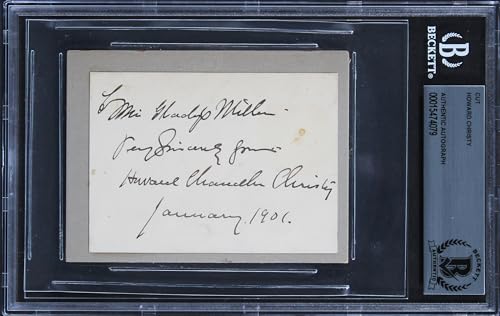 To Miss Gladys Miller
Very Sincerely yours
Howard Chandler Christy
January, 1901.
BECKETT
CUT
HOWARD CHRISTY
AUTHENTIC AUTOGRAPH
00015474079
BECKETT
AUTHENTICATED